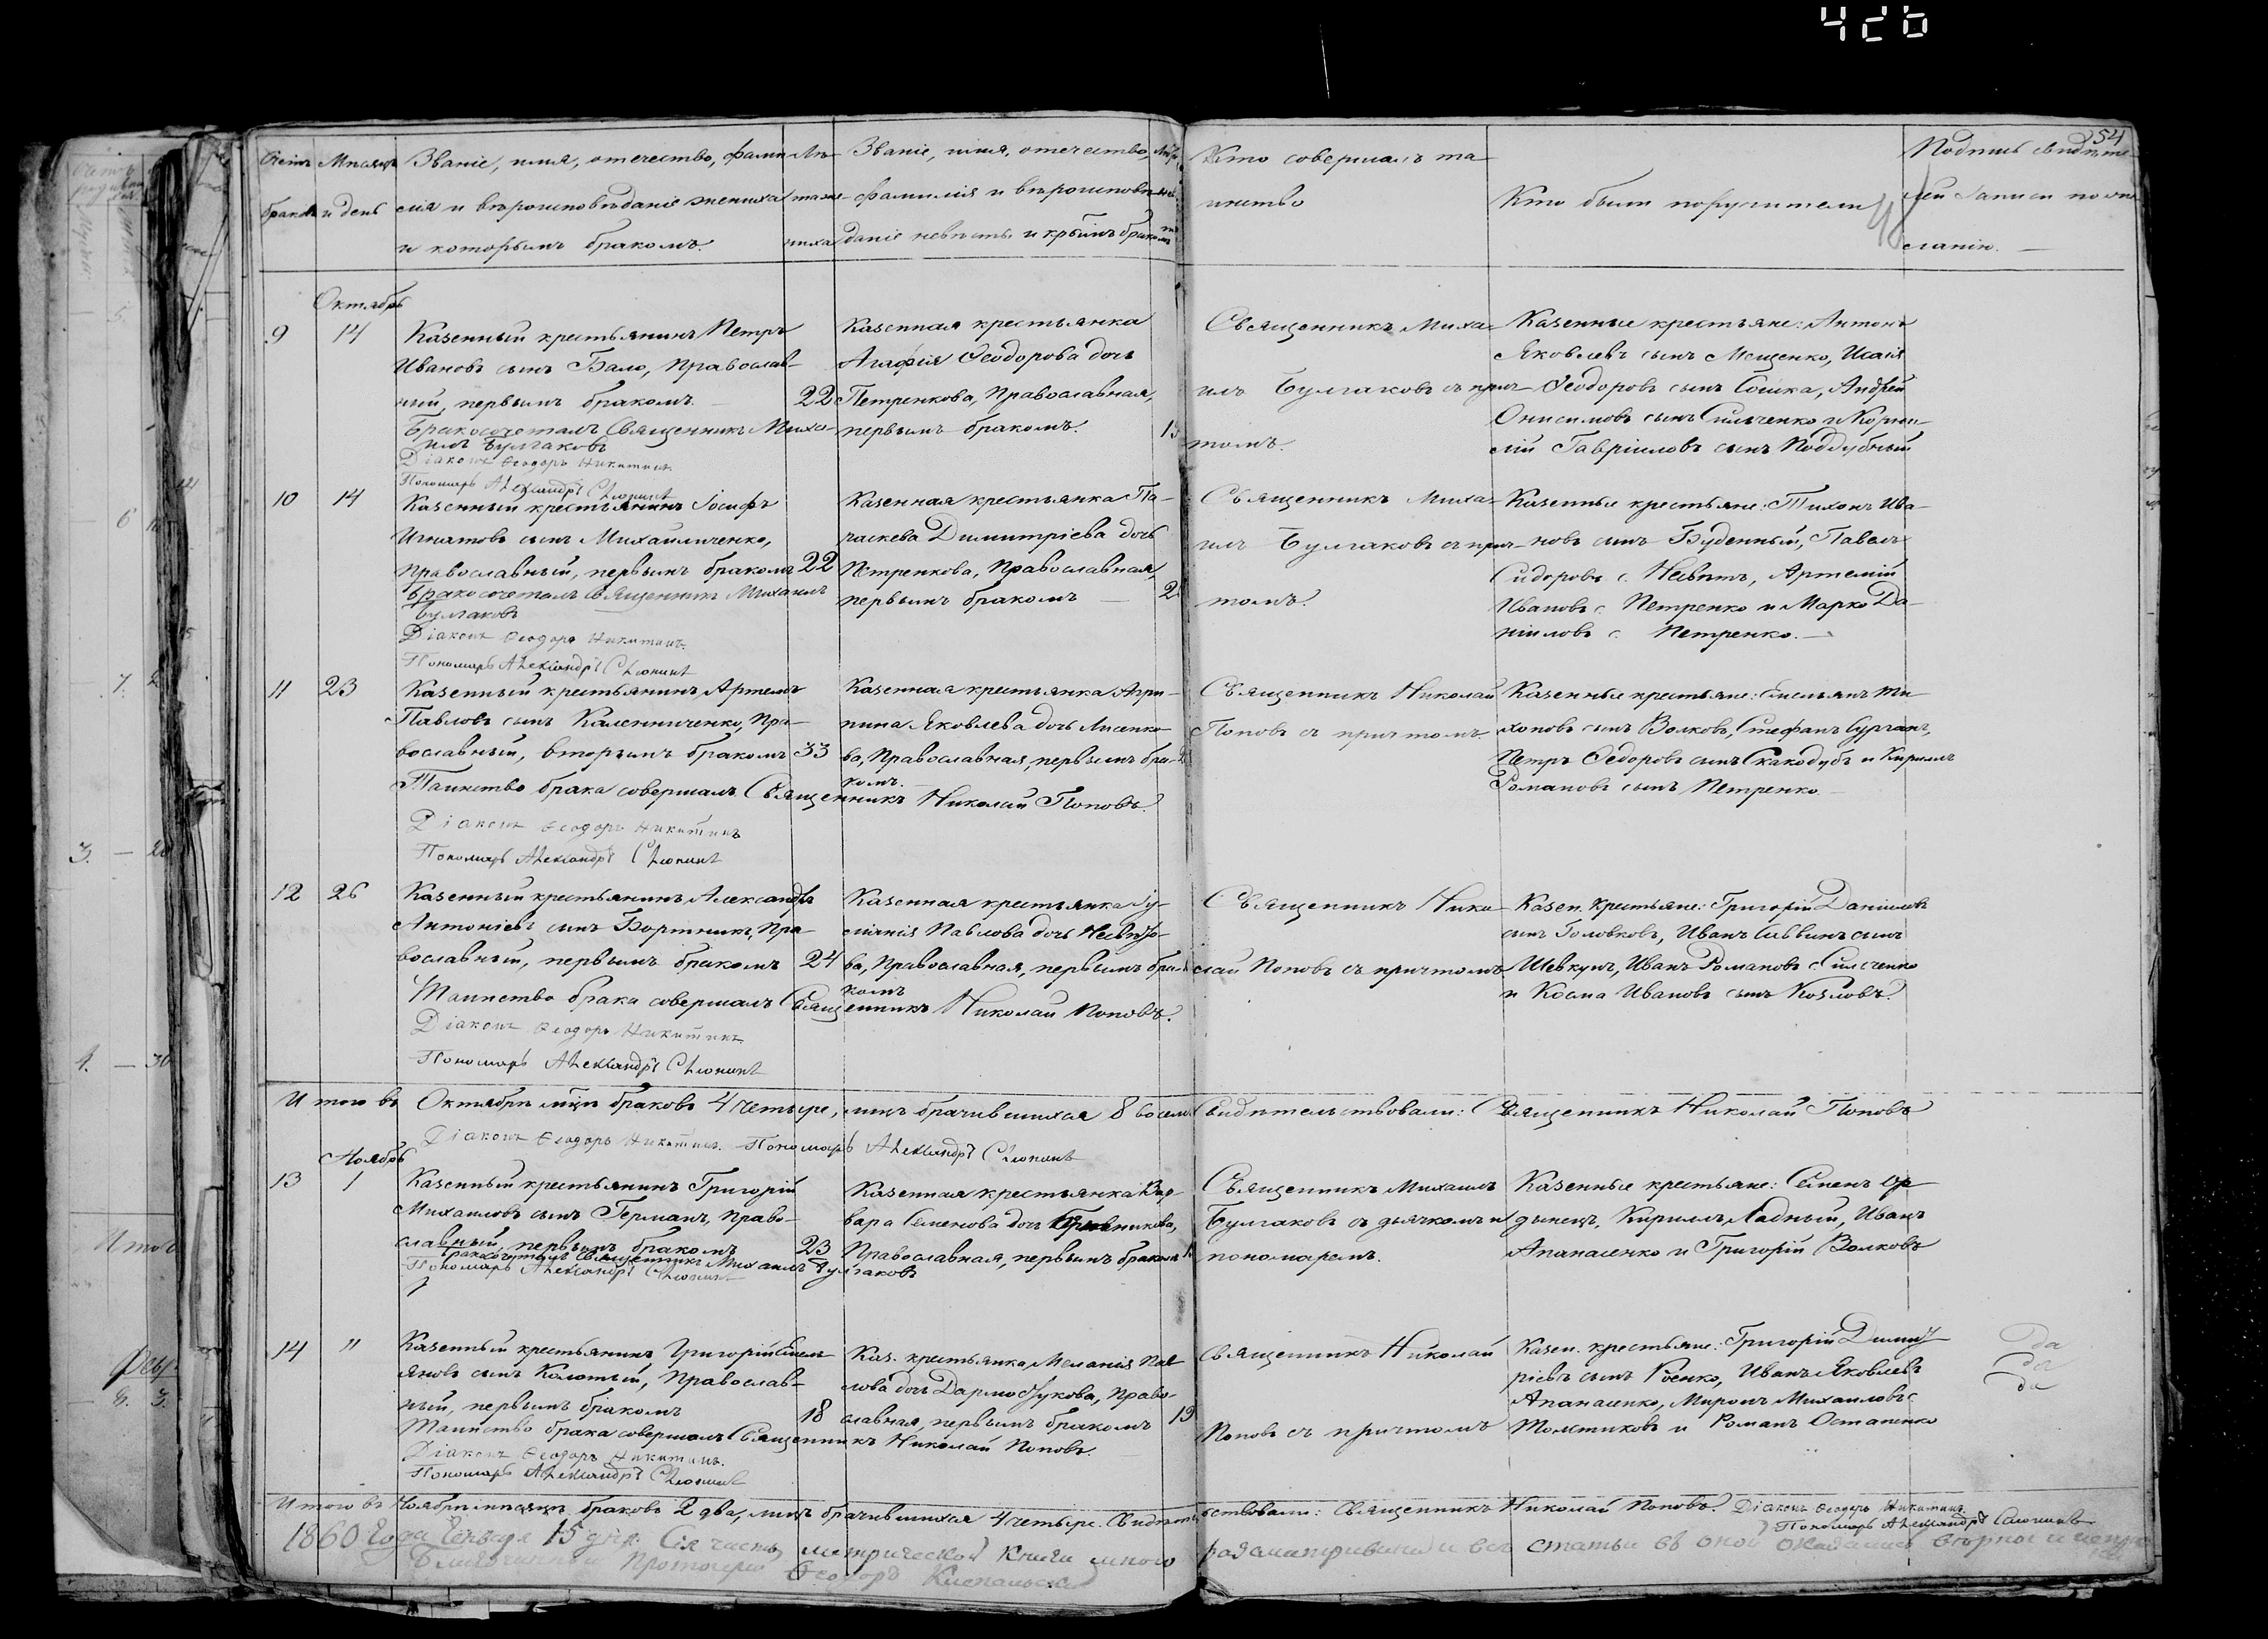 426
54
Счетъ браковъ
Мѣсяцъ и день
Званіе, имя, отечество, фами-
лія и вѣроисповѣданіе жениха
и которымъ бракомъ.
Лѣ-
та же-
ниха
Званіе, имя, отечество,
фамилія и вѣроисповѣ-
даніе невѣсты и
Кто совершалъ та-
инство
Кто были поручители
Подпись свидѣте-
лей записи по же-
ланію.
Октябрь
9 14
Казенный крестьянинъ Петръ
Ивановъ сынъ Бало, Православ-
ный, первымъ бракомъ.
22
Бракосочеталъ Священникъ Миха-
илъ Булгаковъ
Діаконъ Ѳеодоръ Никитинъ
Пономарь Александръ
Казенная крестьянка
Агафія Ѳеодорова дочь
Петренкова, Православная,
первымъ бракомъ.
Священникъ Миха-
илъ Булгаковъ съ прич-
томъ.
Казенные крестьяне: Антонъ
Яковлевъ сынъ Мещенко, Исаія
Ѳеодоровъ сынъ Сошка, Андрей
Онисимовъ сынъ Сильченко и Корни-
лій Гавріиловъ сынъ Поддубный
10 14
Казенный крестьянинъ Іосифъ
Игнатовъ сынъ Михайличенко,
Православный, первымъ бракомъ
22
Бракосочеталъ Священникъ Михаилъ
Булгаковъ
Діаконъ Ѳеодоръ Никитинъ.
Пономарь Александръ
Казенная крестьянка Па-
раскева Димитріева дочь
Петренкова, Православная,
первымъ бракомъ
Священникъ Миха-
илъ Булгаковъ съ прич-
томъ.
Казенные крестьяне: Тихонъ Ива-
новъ сынъ Буденный, Павелъ
Сидоровъ с. Артемій
Ивановъ с. Петренко и Марко Да-
ніиловъ с. Петренко.
11 23
Казенный крестьянинъ Артемъ
Павловъ сынъ Каленниченко, Пра-
вославный, вторымъ бракомъ
33
Казенная крестьянка Агри-
пина Яковлева дочь Лисенко-
ва, Православная, первымъ бра-
комъ.
Таинство брака совершалъ Священникъ Николай Поповъ.
Діаконъ Ѳеодоръ Никитинъ
Пономарь Александръ
Священникъ Николай
Поповъ съ причтомъ.
Казенные крестьяне: Емельянъ Ти-
хоновъ сынъ Волковъ, Стефанъ Сурганъ,
Петръ Ѳедоровъ сынъ Скакодубъ и Кириллъ
Романовъ сынъ Петренко
12 26
Казенный крестьянинъ Александръ
Антоніевъ сынъ Бортникъ, Пра-
вославный, первымъ бракомъ
24
Казенная крестьянка Іу-
ліанія Павлова дочь
ва, Православная, первымъ бра-
комъ
Таинство брака совершалъ Священникъ Николай Поповъ.
Діаконъ Ѳеодоръ Никитинъ
Пономарь Александръ
Священникъ Нико-
лай Поповъ съ причтомъ
Казен. крестьяне: Григорій Даніиловъ
сынъ Головковъ, Иванъ Саввинъ сынъ
Шевкунъ, Иванъ Романовъ с. Сильченко
и Косма Ивановъ сынъ Козловъ.
Итого въ Октябрѣ мѣцѣ браковъ 4 четыре, лицъ брачившихся 8 восемь
Свидѣтельствовали: Священникъ Николай Поповъ
Діаконъ Ѳеодоръ Никитинъ. Пономарь Александръ
Ноябрь
13 1
Казенный крестьянинъ Григорій
Михаиловъ сынъ Германъ, Право-
славный, первымъ бракомъ
23
Бракосочеталъ Священникъ Михаилъ Булгаковъ
Пономарь Александръ
Казенная крестьянка Вар-
вара Семенова дочь
Православная, первымъ бракомъ
Священникъ Михаилъ
Булгаковъ съ дьячкомъ и
пономаремъ.
Казенные крестьяне: Семенъ Ор-
дынецъ, Кириллъ Ладный, Иванъ
Апанасенко и Григорій Волковъ
14 "
Казенный крестьянинъ Григорій Емель-
яновъ сынъ Колотый, Православ-
ный, первымъ бракомъ
18
Каз. крестьянка Меланія Пав-
лова дочь Дармостукова, Право-
славная, первымъ бракомъ
19
Таинство брака совершалъ Священникъ Николай Поповъ.
Діаконъ Ѳеодоръ Никитинъ.
Пономарь Александръ
Священникъ Николай
Поповъ съ причтомъ
Казен. крестьяне: Григорій Димит-
ріевъ сынъ Роенко, Иванъ Яковлевъ
Апанасенко, Миронъ Михаиловъ с.
Толстиковъ и Романъ Остапенко
Да
да
да
Итого въ Ноябрѣ мѣсяцѣ браковъ 2 два, лицъ брачившихся 4 четыре. Свидѣтельствовали: Священникъ Николай Поповъ. Діаконъ Ѳеодоръ Никитинъ
Пономарь Александръ
1860 года Генваря 15 дня. Сія часть метрической книги мною разсматривана и всѣ статьи въ оной оказались вѣрны и
Благочинный Протоіерей Ѳеодоръ